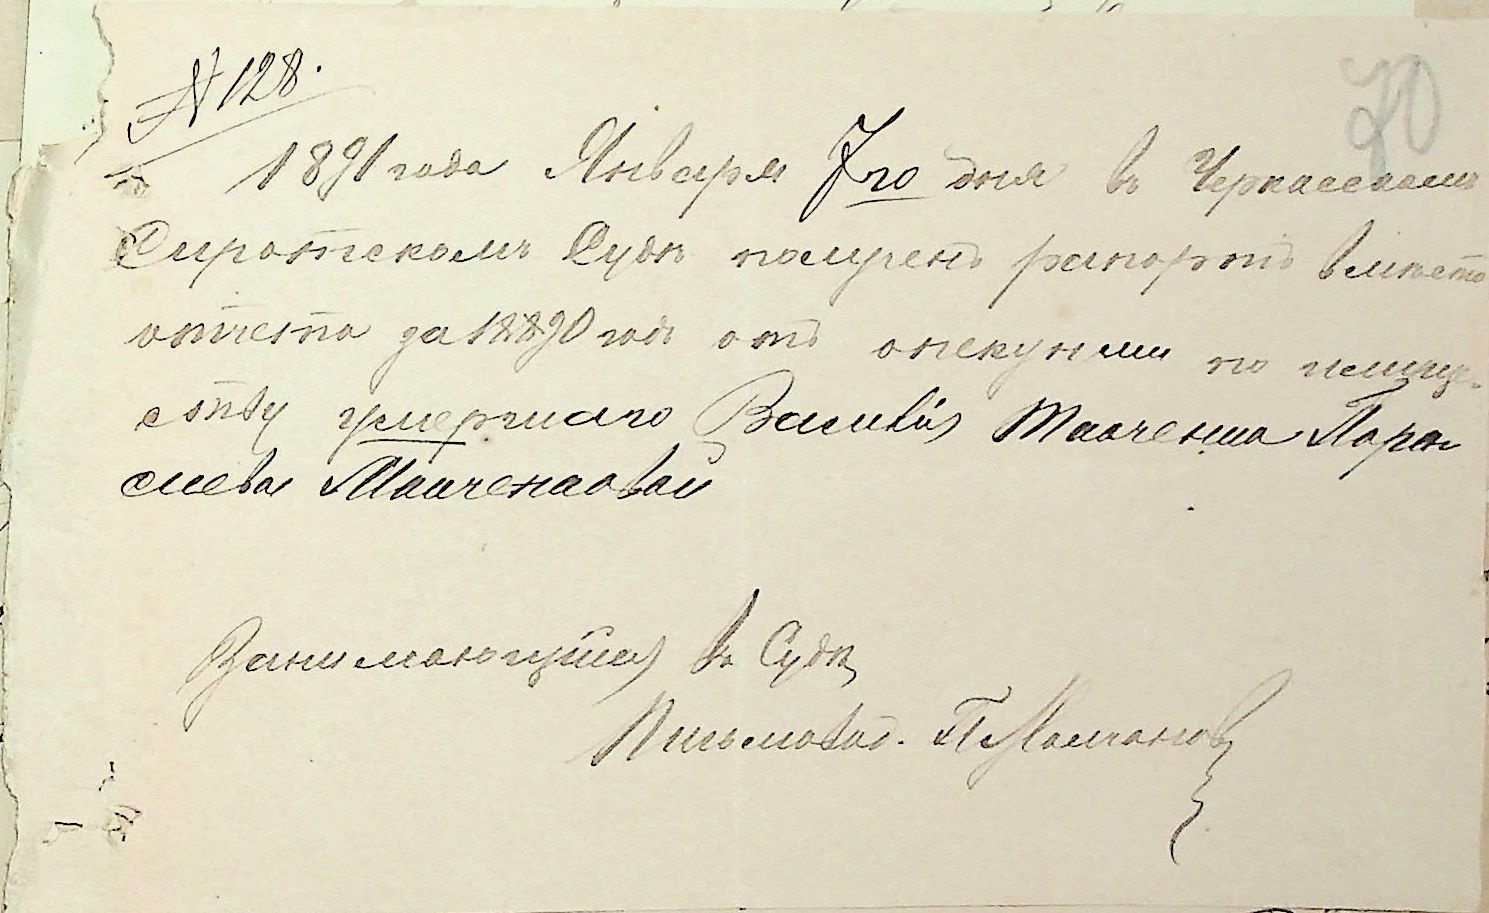 № 128.
70
1891 года Января 7го дня въ Черкасскомъ
Сиротскомъ Судѣ полученъ рапортъ вмѣсто
отчета за 1890 годъ отъ опекунши по имуще-
ству умершаго Василія Ткаченка Параc
Ткаченковой
Занимающійся въ Судѣ
Письмовод. П Молчановъ